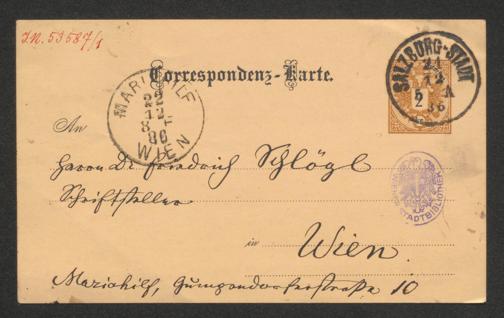 IN. 53587/1
Correspondenz-Karte.
SALZBURG-STADT
21
12
86
MARIAHILF
22
12
86
WIEN
An
Herrn Dr Friedrich Schlögl
Schriftsteller
STADTBIBLIOTHEK
in Wien.
Mariahilf, Gumpendorferstraße 10